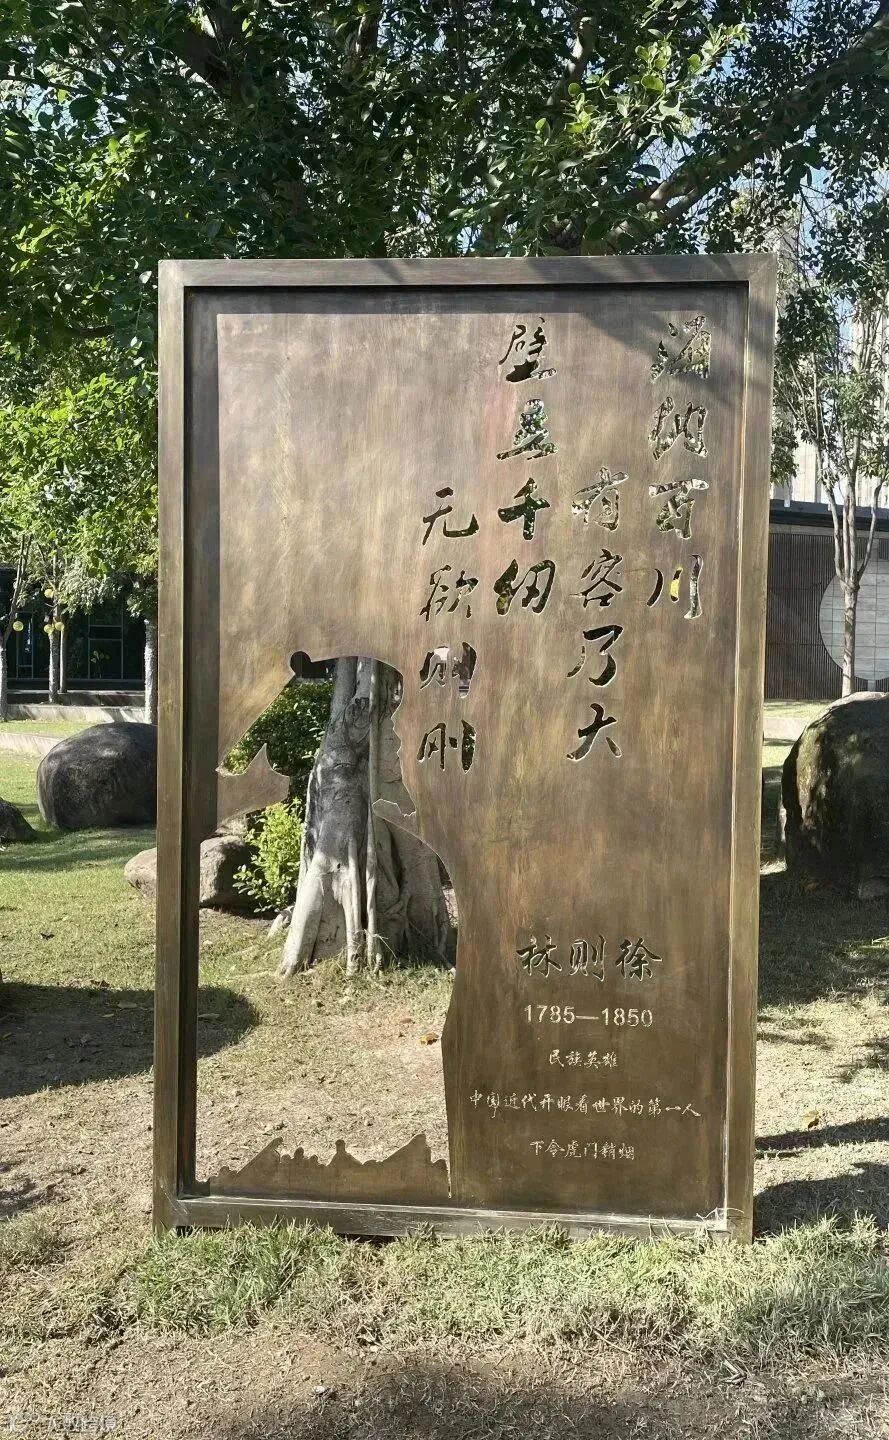 海纳百川
有容乃大
壁立千仞
无欲则刚
林则徐
1785—1850
民族英雄
中国近代开眼看世界的第一人
下令虎门销烟